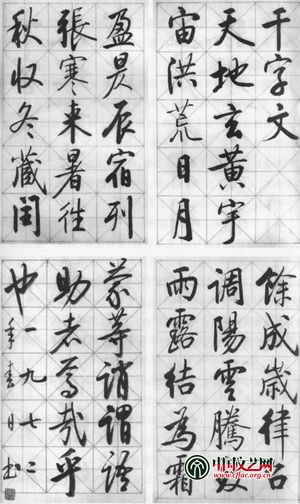 千字文
天地玄黃宇
宙洪荒日月
盈昃辰宿列
張寒来暑往
秋収冬藏閏
餘成歲律召
調陽雲騰致
雨露結為霜
蒙等誚謂語
助者焉哉乎
也一九七二
年春日书